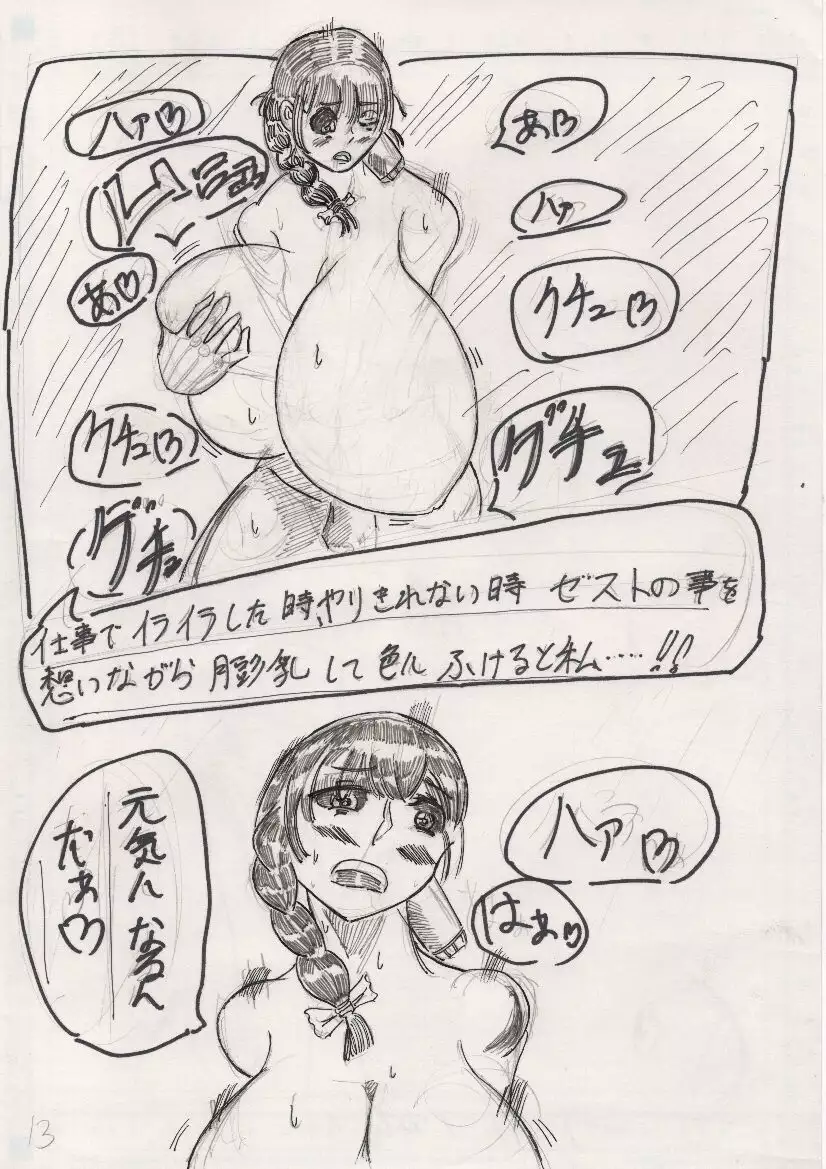 あ♡
ハァ♡
ハァ
あ♡
クチュ♡
クチュ♡
グチュ
グチュ
仕事でイライラした時、やりきれない時 ゼストの事を
想いながら 膨乳して色に ふけると私……!!
ハァ♡
はぁ♡
元気になるん
だぁ♡
13